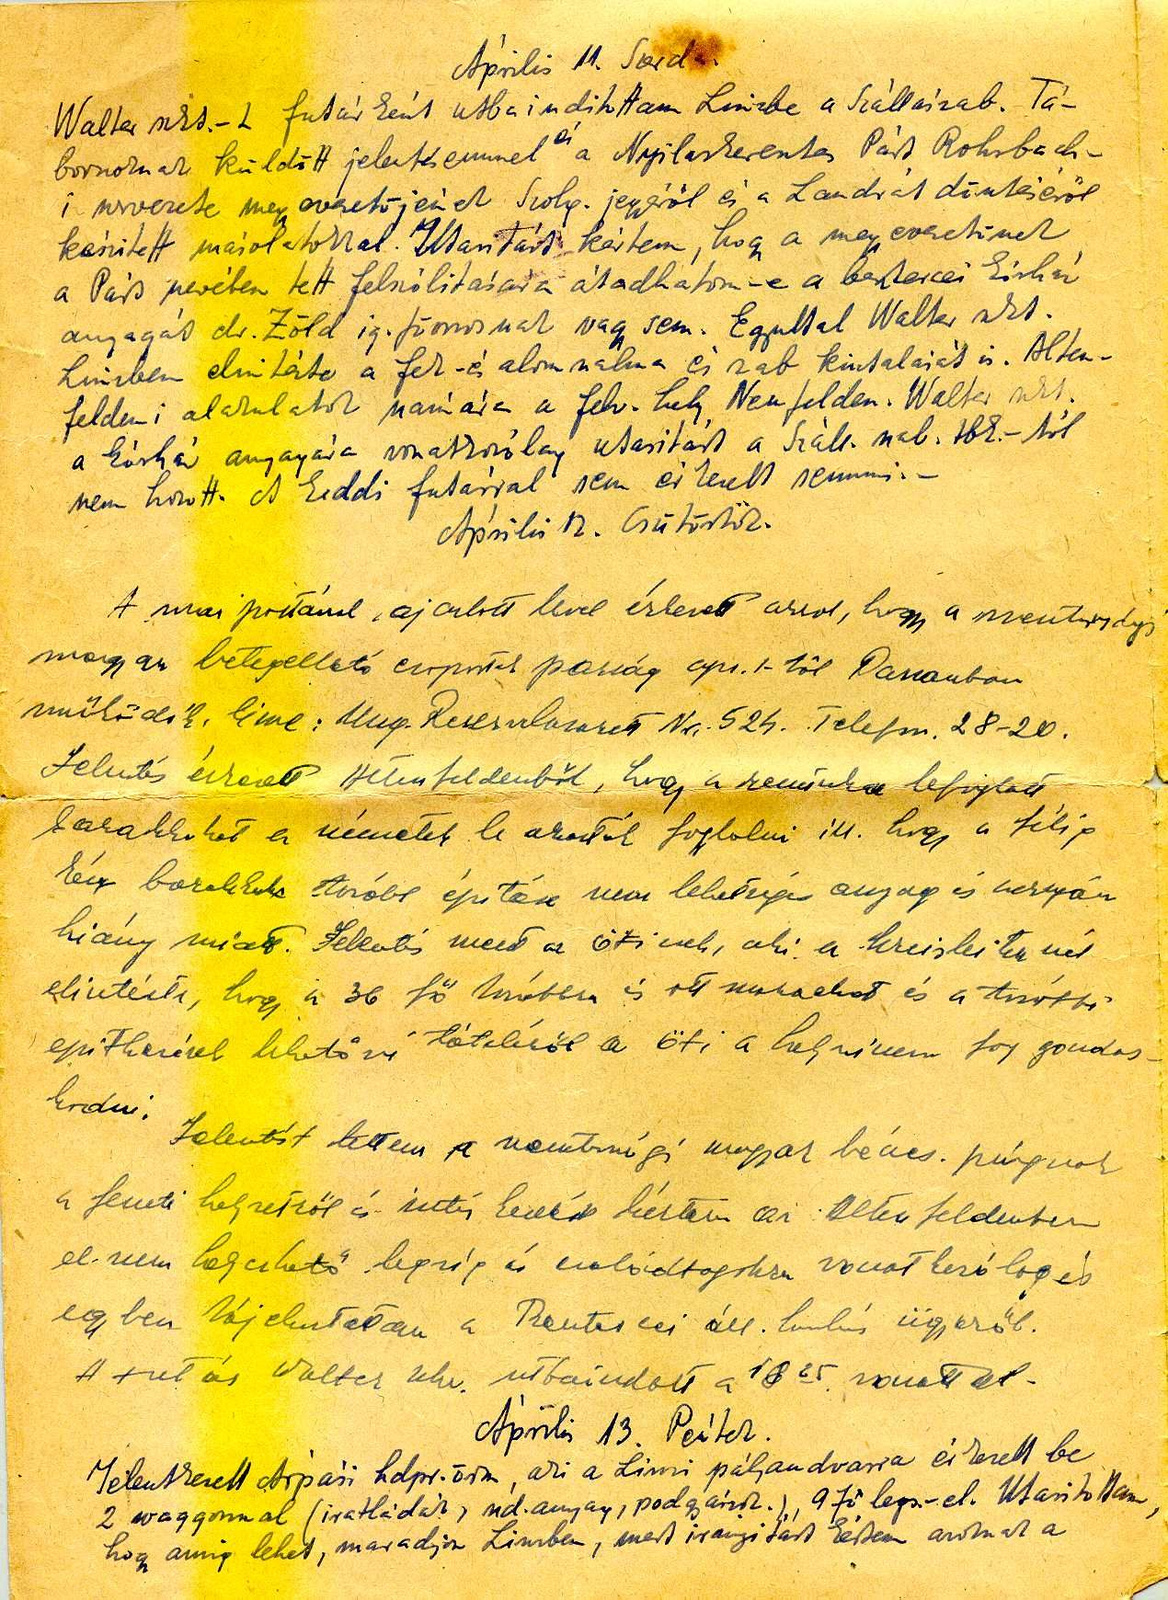 Április 11. Szerda.
Walter szkv.-t futárként utbaindítottam Linzbe a Szállászab. Tá-
bornoknak küldött jelentésemmel és a Nyilaskeresztes Párt Rohrbach-
i szervezete megvezetőjének Szolg. jegyéről és a Landrát döntéséről
készített másolatokkal. Utasítást kértem, hogy a megvezetőnek
a Párt nevében tett felszólitására átadhatom-e a beszterczei kórház
anyagát dr. Zöld ig. főorvosnak vagy sem. Egyuttal Walter szkv.
Linzben elintézte a fek-és alomszalma és zab kiutalását is. Alten-
feldeni alakulatok számára a felv. hely Neufelden. Walter szkv.
a kórház anyagára vonatkozólag utasítást a Száll. szab. tbk.-tól
nem hozott. A keddi futárral sem érkezett semmi.-
Április 12. Csütörtök.
A mai postával ajánlott levél érkezett arról, hogy a
magyar betegellátó csoport ápr. 1-től Passauban
működik. Címe: Ung. Reservelazarett Nr. 524. Telefon. 28-20.
Jelentés érkezett Altenfeldenből, hogy a részünkre lefoglalt
barakkokat a németek le akarták foglalni ill. hogy a félig
kész barakkok tovább építése nem lehetséges anyag és
hiány miatt. Jelentés ment a öti nek, aki a kreisleiternél
elintézte, hogy a 36 fő továbbra is ott maradhat és a további
építkezések lehetővé tételéről a öti a helyszinen fog gondos-
kodni.
Jelentést tettem a magyar
a fenti helyzetről és kértem az Altenfeldenben
el nem helyezhető legség és családtagokra vonatkozólag és
egyben tájékoztattam a ügyéről.
A futár Walter szkv. utbaindult a 18 25 vonattal.-
Április 13. Péntek.
Jelentkezett Árpási hdpr. őrm, aki a Linzi pályaudvarra érkezett be
2 waggonnal (iratládák, üd. anyag, podgyász.), 9 fő legs.-el. Utasítottam,
hogy amíg lehet, maradjon Linzben, mert irányítást kértem azoknak a